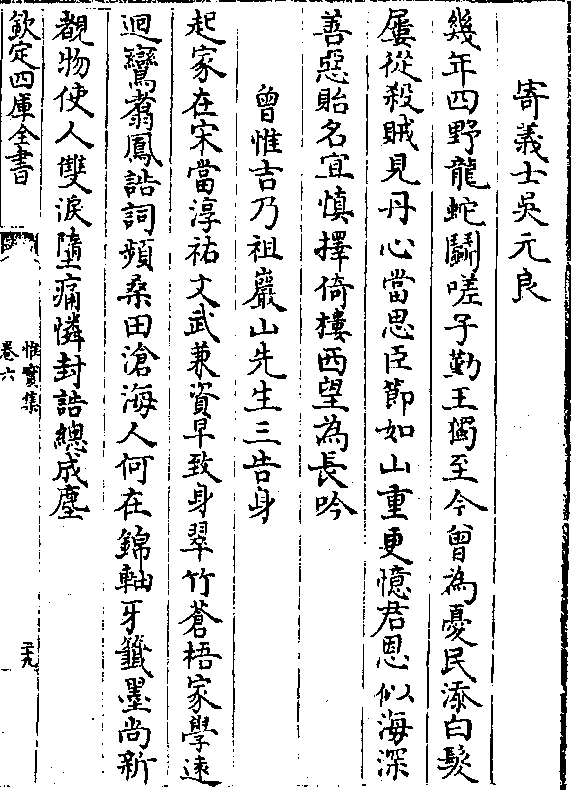 寄義士吳元良
幾年四野龍蛇鬭嗟子勤王獨至今曾為憂民添白髮
屢從殺賊見丹心當思臣節如山重更憶君恩似海深
善惡貽名宜慎擇倚樓西望為長吟
曾惟吉乃祖巖山先生三告身
起家在宋當淳祐文武兼資早致身翠竹蒼梧家學逺
迴鸞翥鳳誥詞頻桑田滄海人何在錦軸牙籤墨尚新
覩物使人雙淚墮痛憐封誥總成塵
欽定四庫全書
惟實集
卷六
二十九